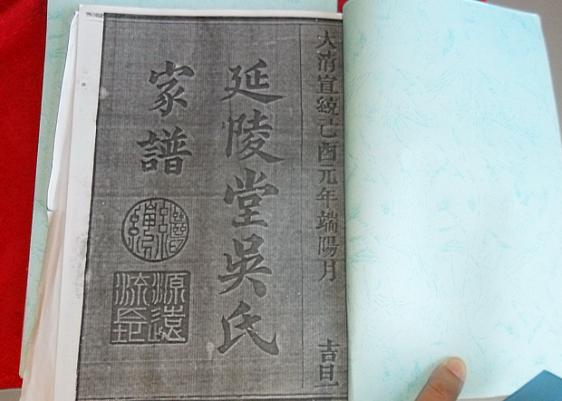 大清宣統己酉元年端陽月 吉旦
延陵堂吳氏
家譜
源遠
流長